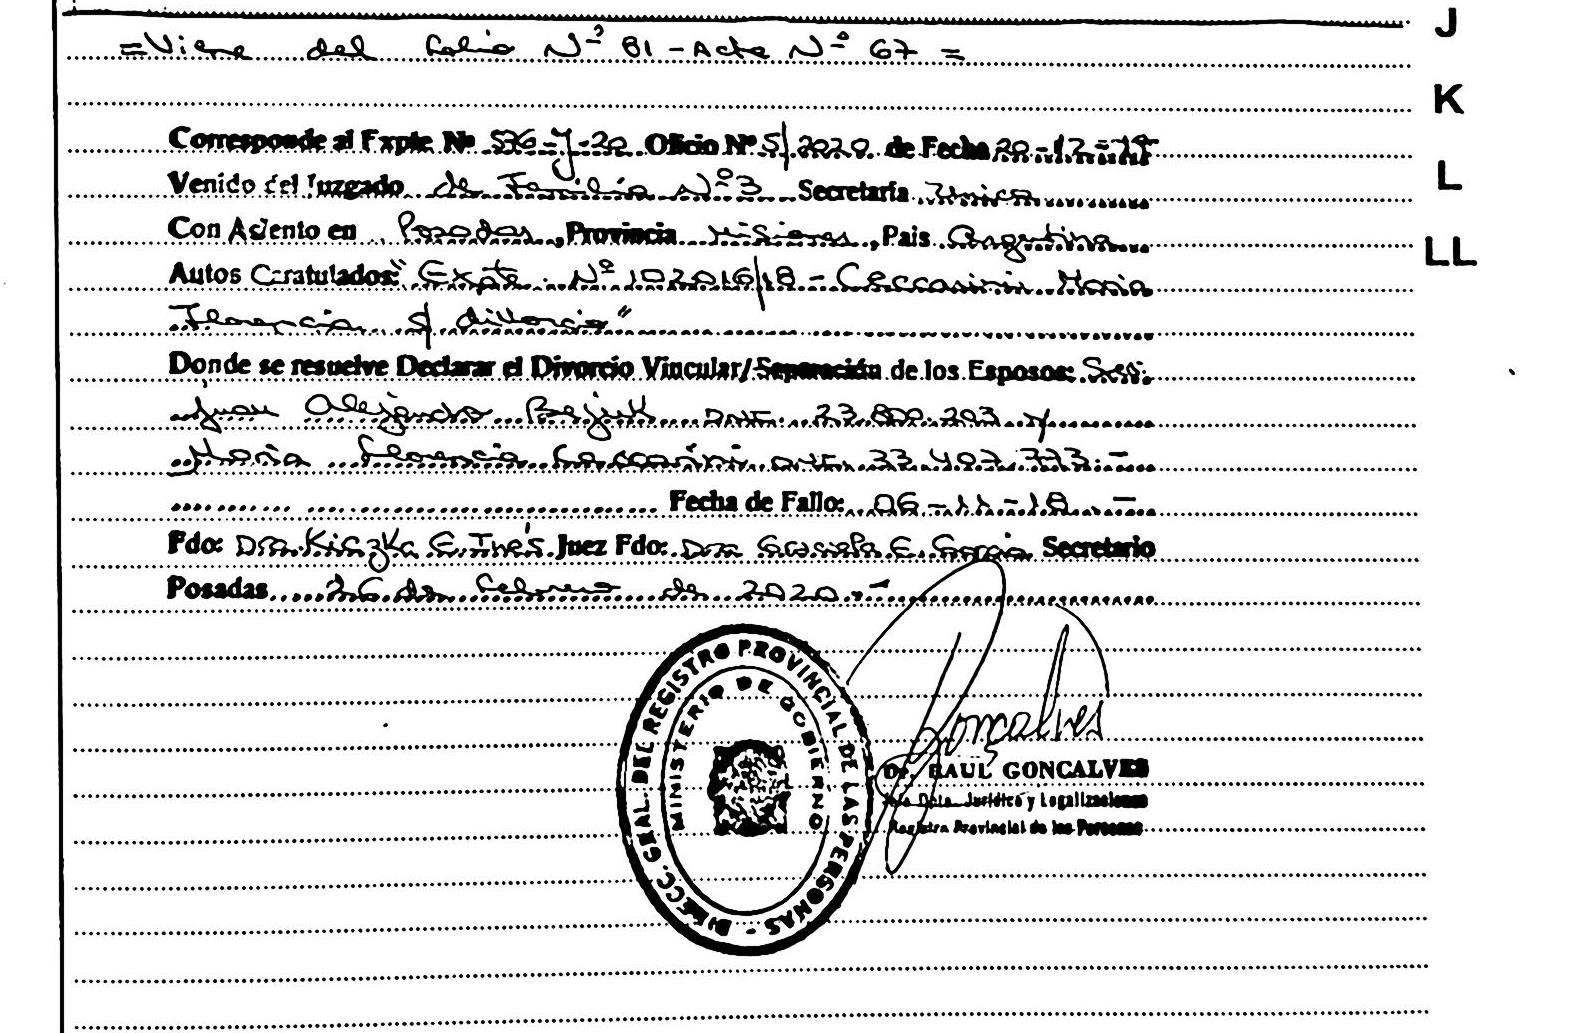 =Viene del folio Nº 81 - Acta Nº 67 =
J
K
Corresponde al Expte Nº 576-J-20 Oficio Nº 5/2020 de Fecha 20-12-19
Venido del Juzgado de Familia Nº3 Secretaría Unica
L
Con Asiento en Posadas, Provincia Misiones, Pais Argentina
LL
Autos Caratulados: "Expte. Nº 102016/18 - Ceccarini Maria
Florencia s/ divorcio"
Donde se resuelve Declarar el Divorcio Vincular/Separación de los Esposos: Sres.
Juan Alejandro Bejuk DNI. 23.800.203 y
Maria Florencia Ceccarini DNI. 33.407.773.-
Fecha de Fallo: 06-11-18.-
Fdo: Dra. Kiczka E. Inés Juez Fdo: Dra Graciela E. Garcia Secretario
Posadas 26 de febrero de 2020.-
DIRECC. GRAL. DEL REGISTRO PROVINCIAL DE LAS PERSONAS -
MINISTERIO DE GOBIERNO
Gonçalves
Dr. RAUL GONCALVES
Dpto. Jurídico y Legalizaciones
Registro Provincial de las Personas